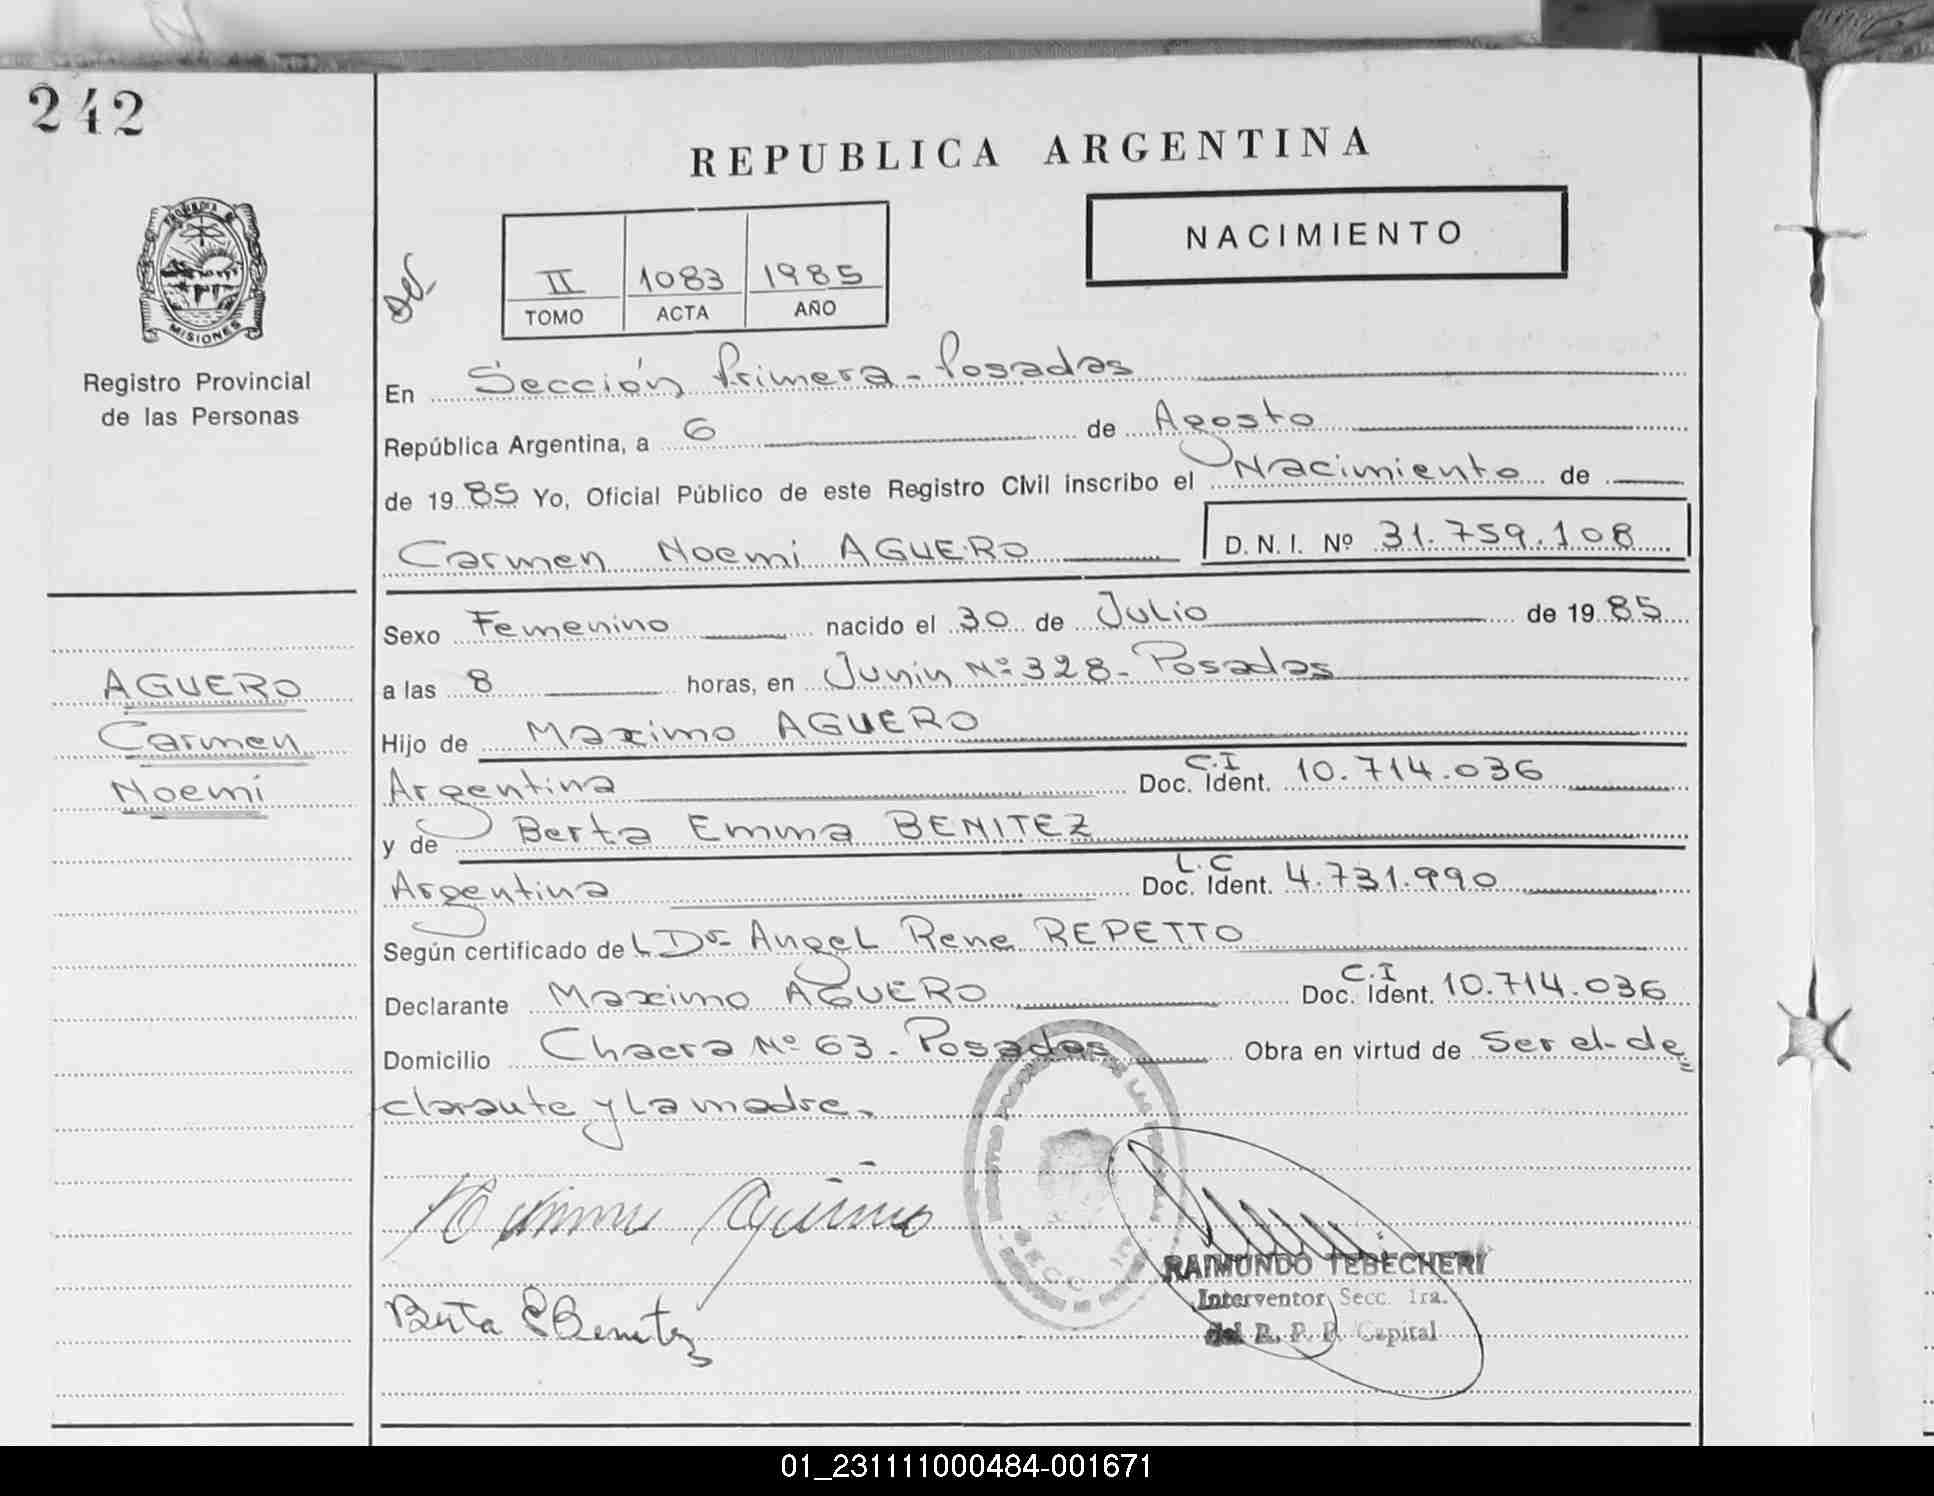 242
REPUBLICA ARGENTINA
NACIMIENTO
II 1083 1985
TOMO ACTA AÑO
PROVINCIA DE
MISIONES
Registro Provincial
de las Personas
En Sección Primera - Posadas
República Argentina, a 6 de Agosto
de 1985 Yo, Oficial Público de este Registro Civil inscribo el Nacimiento de
Carmen Noemi AGUERO D. N. I. Nº 31.759.108
Sexo Femenino nacido el 30 de Julio de 1985
a las 8 horas, en Junin Nº 328 - Posadas
Hijo de Maximo AGUERO
Argentina Doc. Ident. C.I 10.714.036
y de Berta Emma BENITEZ
Argentina Doc. Ident. L.C 4.731.990
Según certificado del Dr. Angel Rene REPETTO
Declarante Maximo AGUERO Doc. Ident. C.I 10.714.036
Domicilio Chacra Nº 63 - Posadas Obra en virtud de Ser el de=
clarante y la madre.
AGUERO
Carmen
Noemi
Berta E Benitez
RAIMUNDO TEBECHERI
Interventor Secc. 1ra.
del R. P. P. Capital
01_231111000484-001671